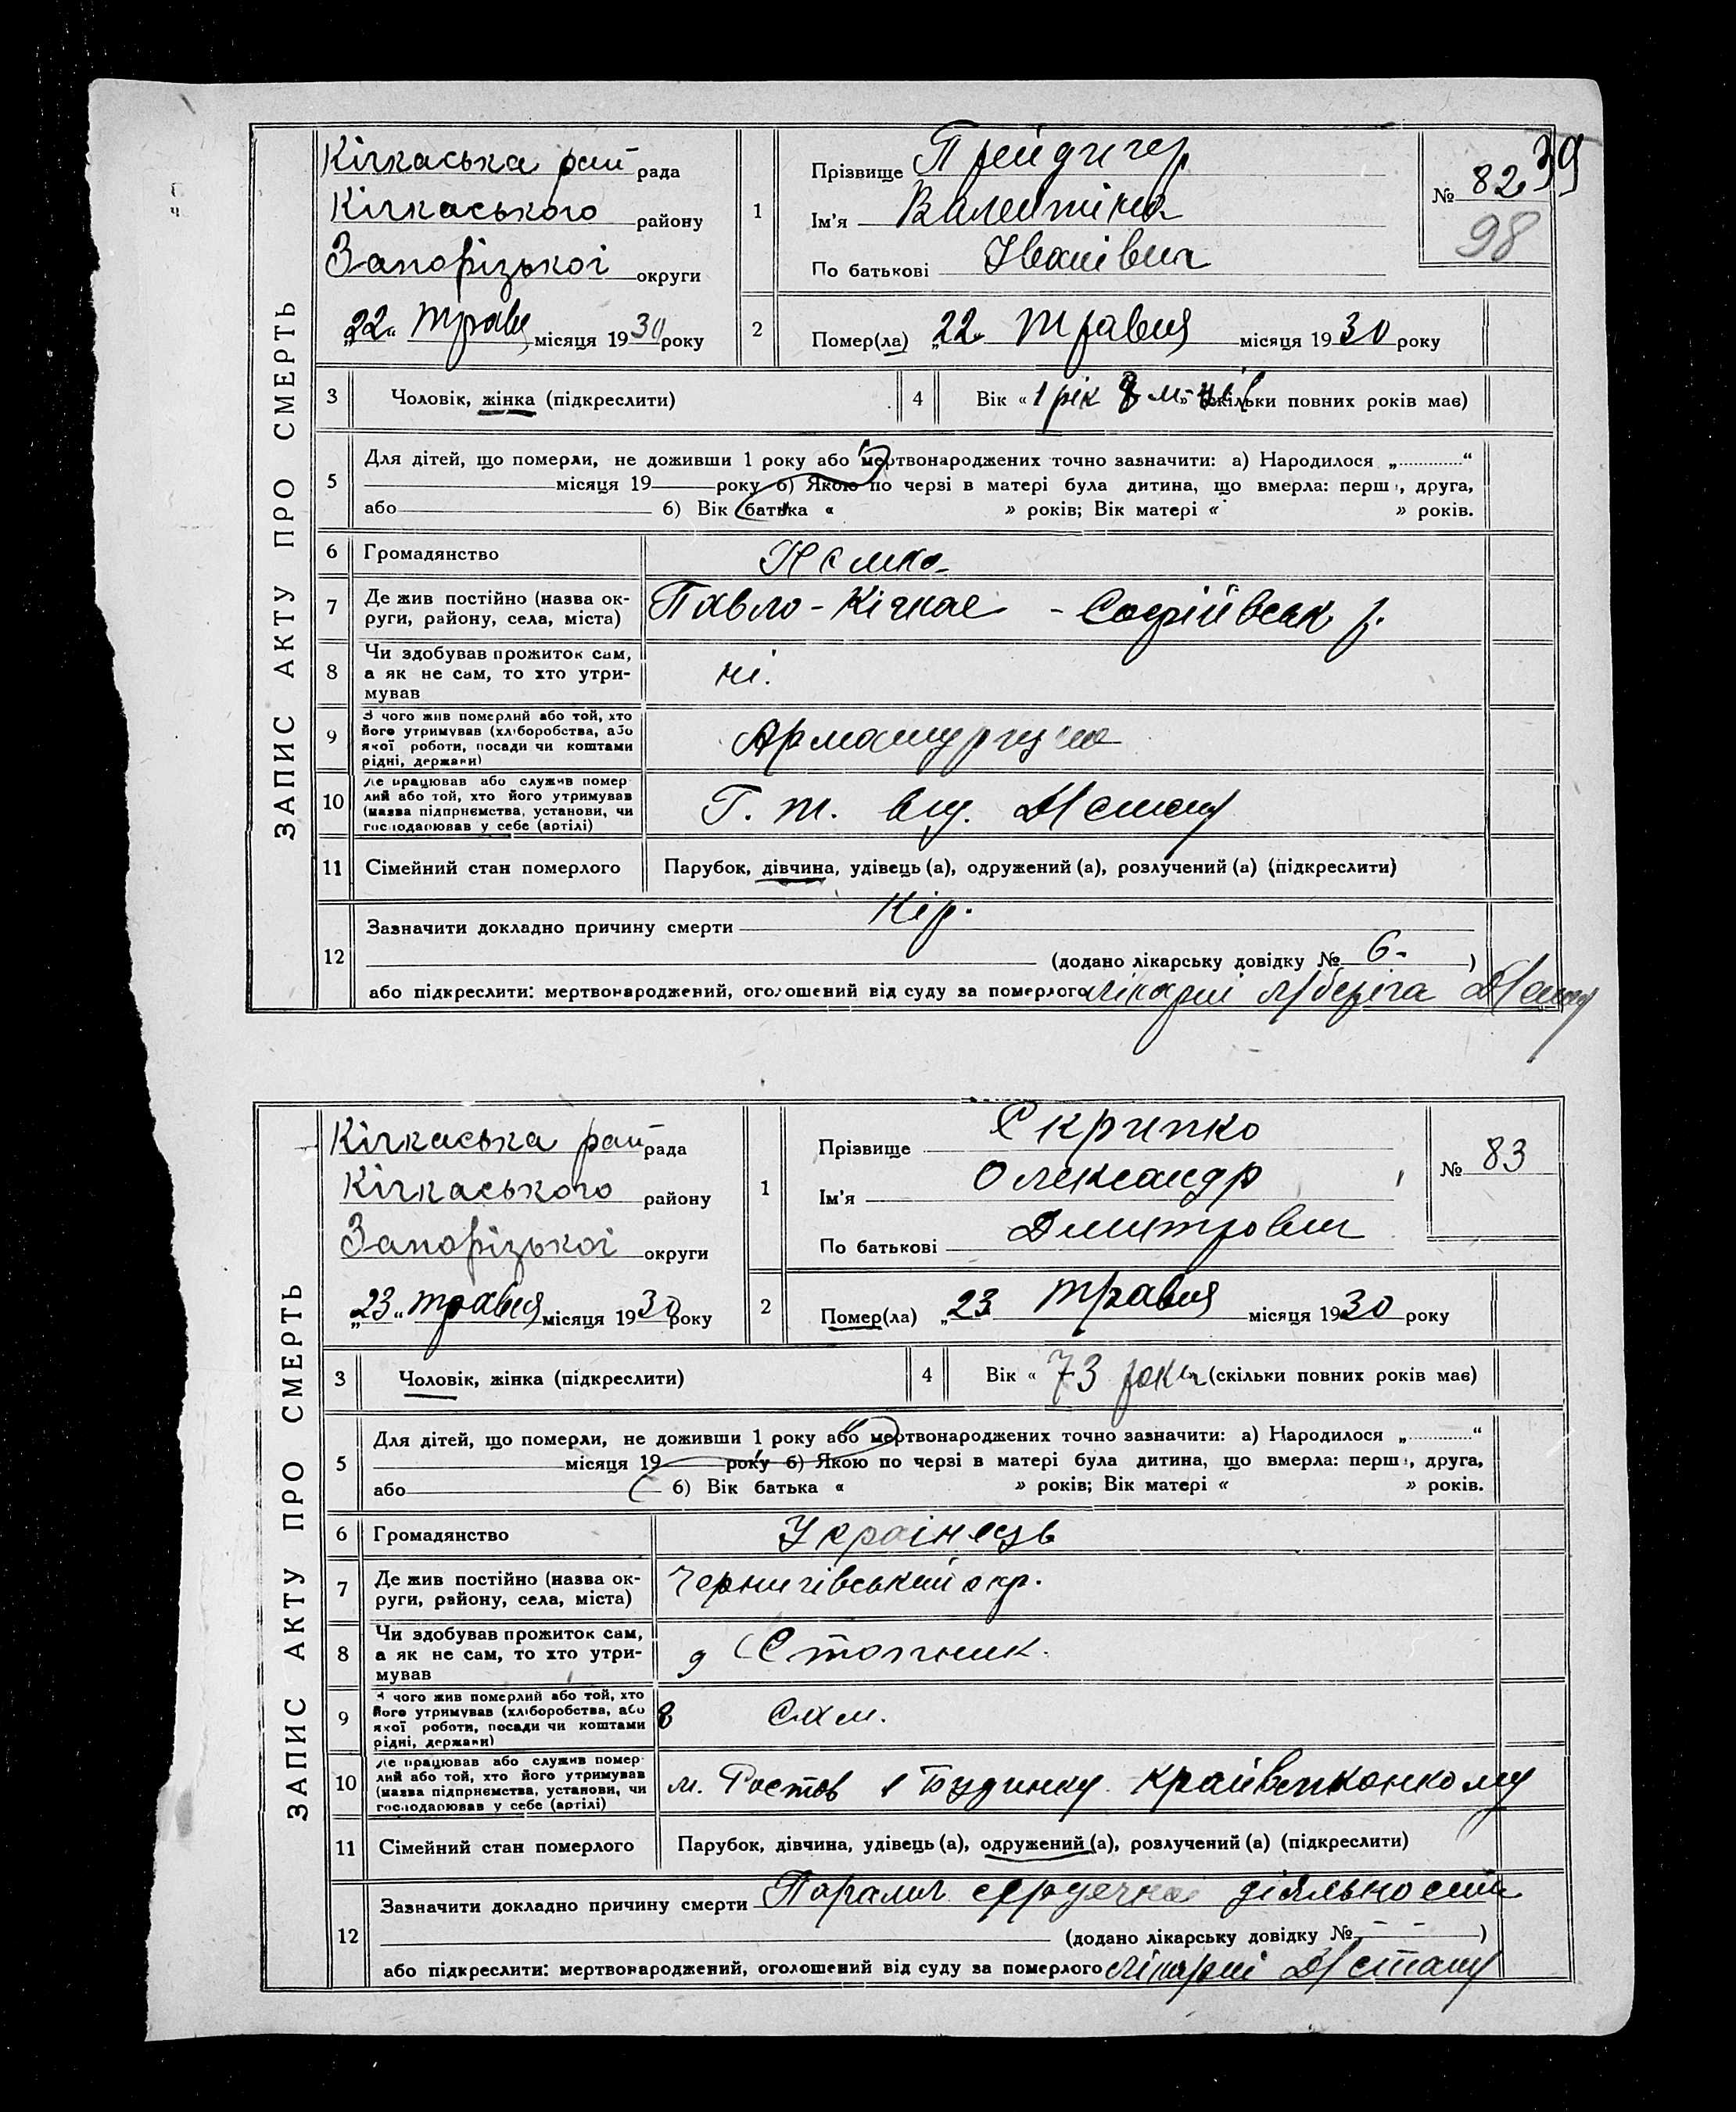 ЗАПИС АКТУ ПРО СМЕРТЬ
Кічкаська рай рада
Кічкаського району
Запорізької округи
„22“ Травн місяця 1930 року
1
Прізвище Прейдигер
Ім'я Валентина
По батькові Іванівна
№ 82
39
98
2
Помер(ла) „22 Травня місяця 1930 року
3 Чоловік, жінка (підкреслити)
4 Вік « 1 рік 8 м-ців (скільки повних років має)
5 Для дітей, що померли, не доживши 1 року або мертвонароджених точно зазначити: а) Народилося „............“
місяця 19 року б) Якою по черзі в матері була дитина, що вмерла: перша, друга,
або б) Вік батька « » років; Вік матері « » років.
6 Громадянство Німка
7 Де жив постійно (назва округи, району, села, міста) Павло-Кічкас - Софіївськ р.
8 Чи здобував прожиток сам, а як не сам, то хто утримував ні.
9 З чого жив померлий або той, хто його утримував (хліборобства, або якої роботи, посади чи коштами рідні, держави)
10 Де працював або служив померлий або той, хто його утримував (назва підприємства, установи, чи господарював у себе (артілі) Г. т. від.
11 Сімейний стан померлого Парубок, дівчина, удівець (а), одружений (а), розлучений (а) (підкреслити)
12 Зазначити докладно причину смерти Кір.
(додано лікарську довідку № 6 - )
або підкреслити: мертвонароджений, оголошений від суду за померлого лікарні
ЗАПИС АКТУ ПРО СМЕРТЬ
Кічкаська рай рада
Кічкаського району
Запорізької округи
„23“ травня місяця 1930 року
1
Прізвище Скрипко
Ім'я Олександр
По батькові Дмитрович
№ 83
2
Помер(ла) „23 травня місяця 1930 року
3 Чоловік, жінка (підкреслити)
4 Вік « 73 роки (скільки повних років має)
5 Для дітей, що померли, не доживши 1 року або мертвонароджених точно зазначити: а) Народилося „............“
місяця 19 року б) Якою по черзі в матері була дитина, що вмерла: перша, друга,
або б) Вік батька « » років; Вік матері « » років.
6 Громадянство Українець
7 Де жив постійно (назва округи, району, села, міста) Чернигівський окр.
8 Чи здобував прожиток сам, а як не сам, то хто утримував
9 З чого жив померлий або той, хто його утримував (хліборобства, або якої роботи, посади чи коштами рідні, держави) Сам.
10 Де працював або служив померлий або той, хто його утримував (назва підприємства, установи, чи господарював у себе (артілі) м. Ростов в будинку крайвиконкому
11 Сімейний стан померлого Парубок, дівчина, удівець (а), одружений (а), розлучений (а) (підкреслити)
12 Зазначити докладно причину смерти Параліч сердечної діяльности
(додано лікарську довідку № - - )
або підкреслити: мертвонароджений, оголошений від суду за померлого лікарні